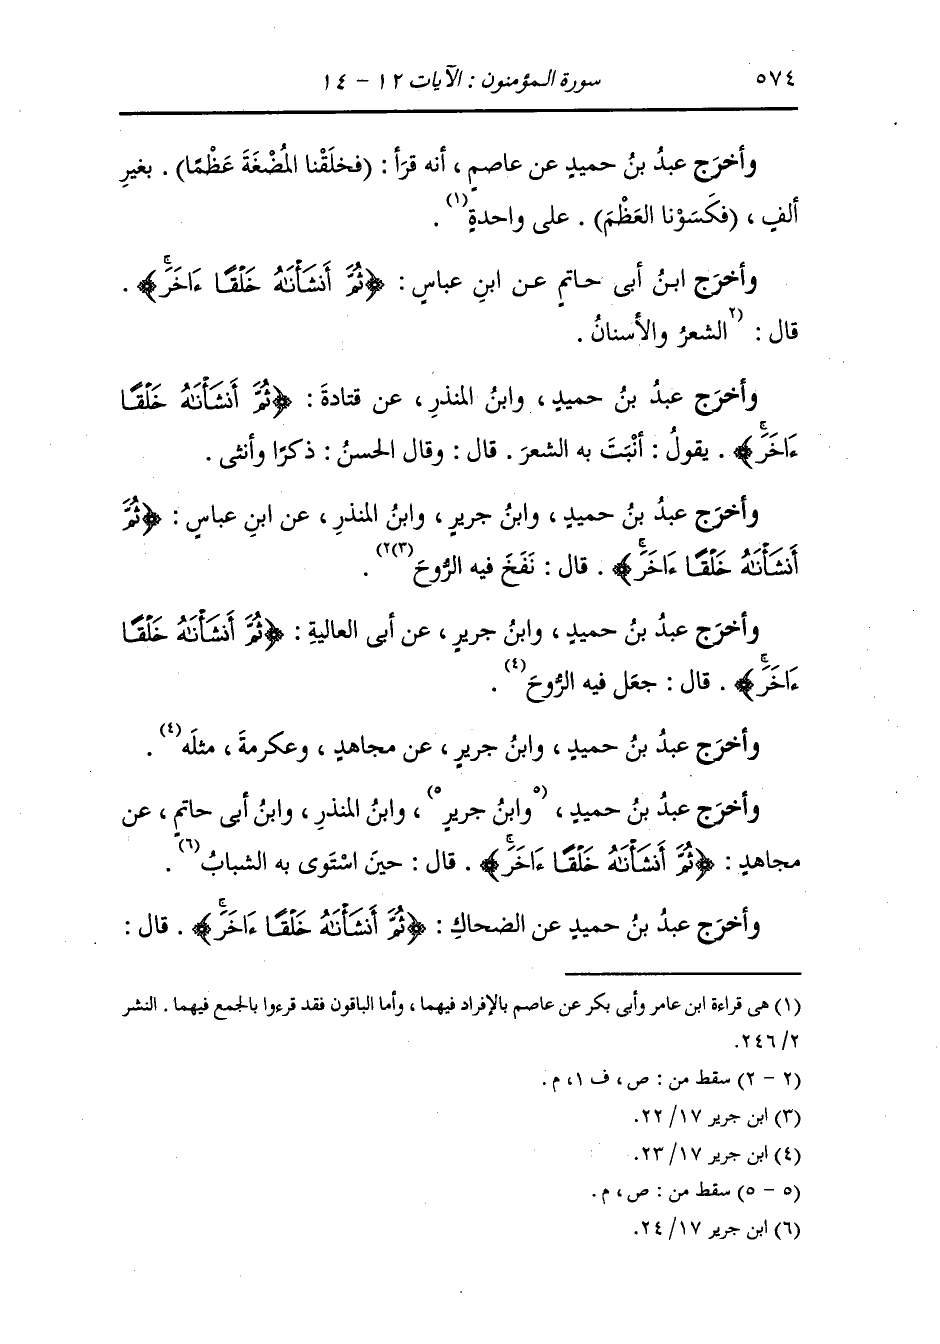 ٥٧٤ سورة المؤمنون : الآيات ١٢ - ١٤
وأخرَج عبدُ بنُ حميدٍ عن عاصمٍ ، أنه قرَأ : (فخلَقْنا المُضْغَةَ عَظْمًا) . بغيرِ
ألفٍ ، (فكَسَوْنا العَظْمَ) . على واحدةٍ(١) .
وأخرَج ابنُ أبى حاتمٍ عن ابنِ عباسٍ : ﴿ثُمَّ أَنشَأْنَٰهُ خَلْقًا ءَاخَرَۚ﴾ .
قال : (٢الشعرُ والأسنانُ .
وأخرَج عبدُ بنُ حميدٍ ، وابنُ المنذرِ ، عن قتادةَ : ﴿ثُمَّ أَنشَأْنَٰهُ خَلْقًا
ءَاخَرَۚ﴾ . يقولُ : أنْبَتَ به الشعرَ . قال : وقال الحسنُ : ذكرًا وأنثى .
وأخرَج عبدُ بنُ حميدٍ ، وابنُ جريرٍ ، وابنُ المنذرِ ، عن ابنِ عباسٍ : ﴿ثُمَّ
أَنشَأْنَٰهُ خَلْقًا ءَاخَرَۚ﴾ . قال : نَفَخَ فيه الرُّوحَ(٣)٢) .
وأخرَج عبدُ بنُ حميدٍ ، وابنُ جريرٍ ، عن أبى العاليةِ : ﴿ثُمَّ أَنشَأْنَٰهُ خَلْقًا
ءَاخَرَۚ﴾ . قال : جعَل فيه الرُّوحَ(٤) .
وأخرَج عبدُ بنُ حميدٍ ، وابنُ جريرٍ ، عن مجاهدٍ ، وعكرمةَ ، مثلَه(٤) .
وأخرَج عبدُ بنُ حميدٍ ، (٥وابنُ جريرٍ٥) ، وابنُ المنذرِ ، وابنُ أبى حاتمٍ ، عن
مجاهدٍ : ﴿ثُمَّ أَنشَأْنَٰهُ خَلْقًا ءَاخَرَۚ﴾ . قال : حينَ اسْتَوى به الشبابُ(٦) .
وأخرَج عبدُ بنُ حميدٍ عن الضحاكِ : ﴿ثُمَّ أَنشَأْنَٰهُ خَلْقًا ءَاخَرَۚ﴾ . قال :
(١) هى قراءة ابن عامر وأبى بكر عن عاصم بالإفراد فيهما ، وأما الباقون فقد قرءوا بالجمع فيهما . النشر
٢/ ٢٤٦.
(٢ - ٢) سقط من : ص ، ف ١، م .
(٣) ابن جرير ١٧/ ٢٢.
(٤) ابن جرير ١٧/ ٢٣.
(٥ - ٥) سقط من : ص ، م .
(٦) ابن جرير ١٧/ ٢٤.